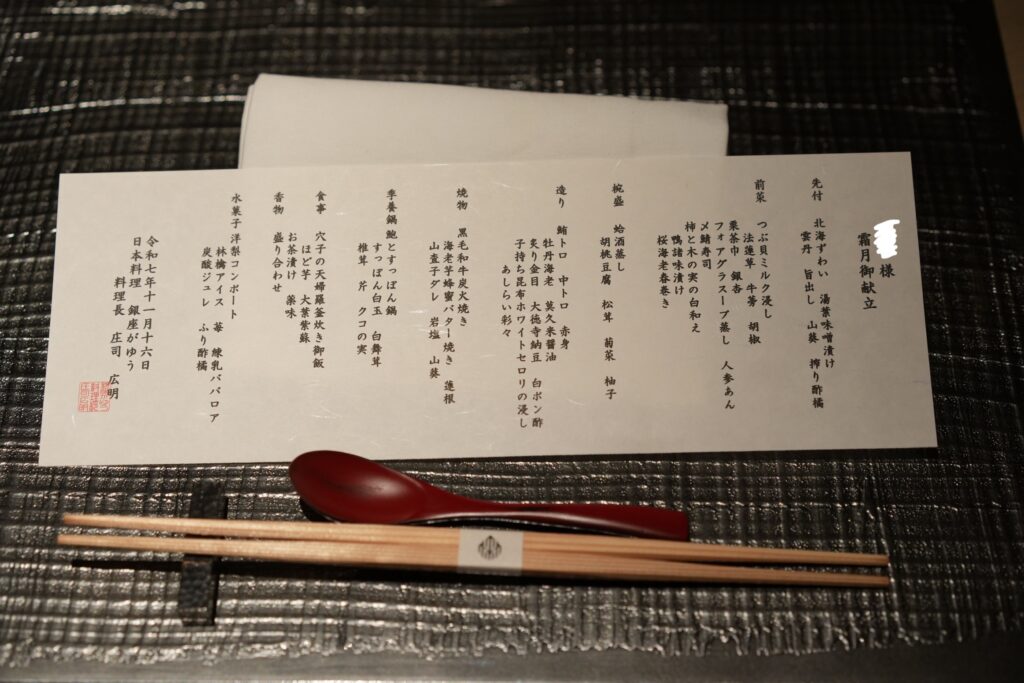 様
霜月御献立
先付　北海ずわい　湯葉味噌漬け
雲丹　旨出し　山葵　搾り酢橘
前菜　つぶ貝ミルク浸し
法蓮草　牛蒡　胡椒
栗茶巾　銀杏
フォアグラスープ蒸し　人参あん
〆鯖寿司
柿と木の実の白和え
鴨諸味漬け
桜海老春巻き
椀盛　蛤酒蒸し
胡桃豆腐　松茸　菊菜　柚子
造り　鮪トロ　中トロ　赤身
牡丹海老　莫久来醤油
炙り金目　大徳寺納豆　白ポン酢
子持ち昆布ホワイトセロリの浸し
あしらい彩々
焼物　黒毛和牛炭火焼き
海老芋蜂蜜バター焼き　蓮根
山査子ダレ　岩塩　山葵
季養鍋　鮑とすっぽん鍋
すっぽん白玉　白舞茸
椎茸　芹　クコの実
食事　穴子の天婦羅釜炊き御飯
ほど芋　大葉紫蘇
お茶漬け　薬味
香物　盛り合わせ
水菓子　洋梨コンポート
林檎アイス　苺　練乳ババロア
炭酸ジュレ　ふり酢橘
令和七年十一月十六日
日本料理　銀座がゆう
料理長　庄司　広明